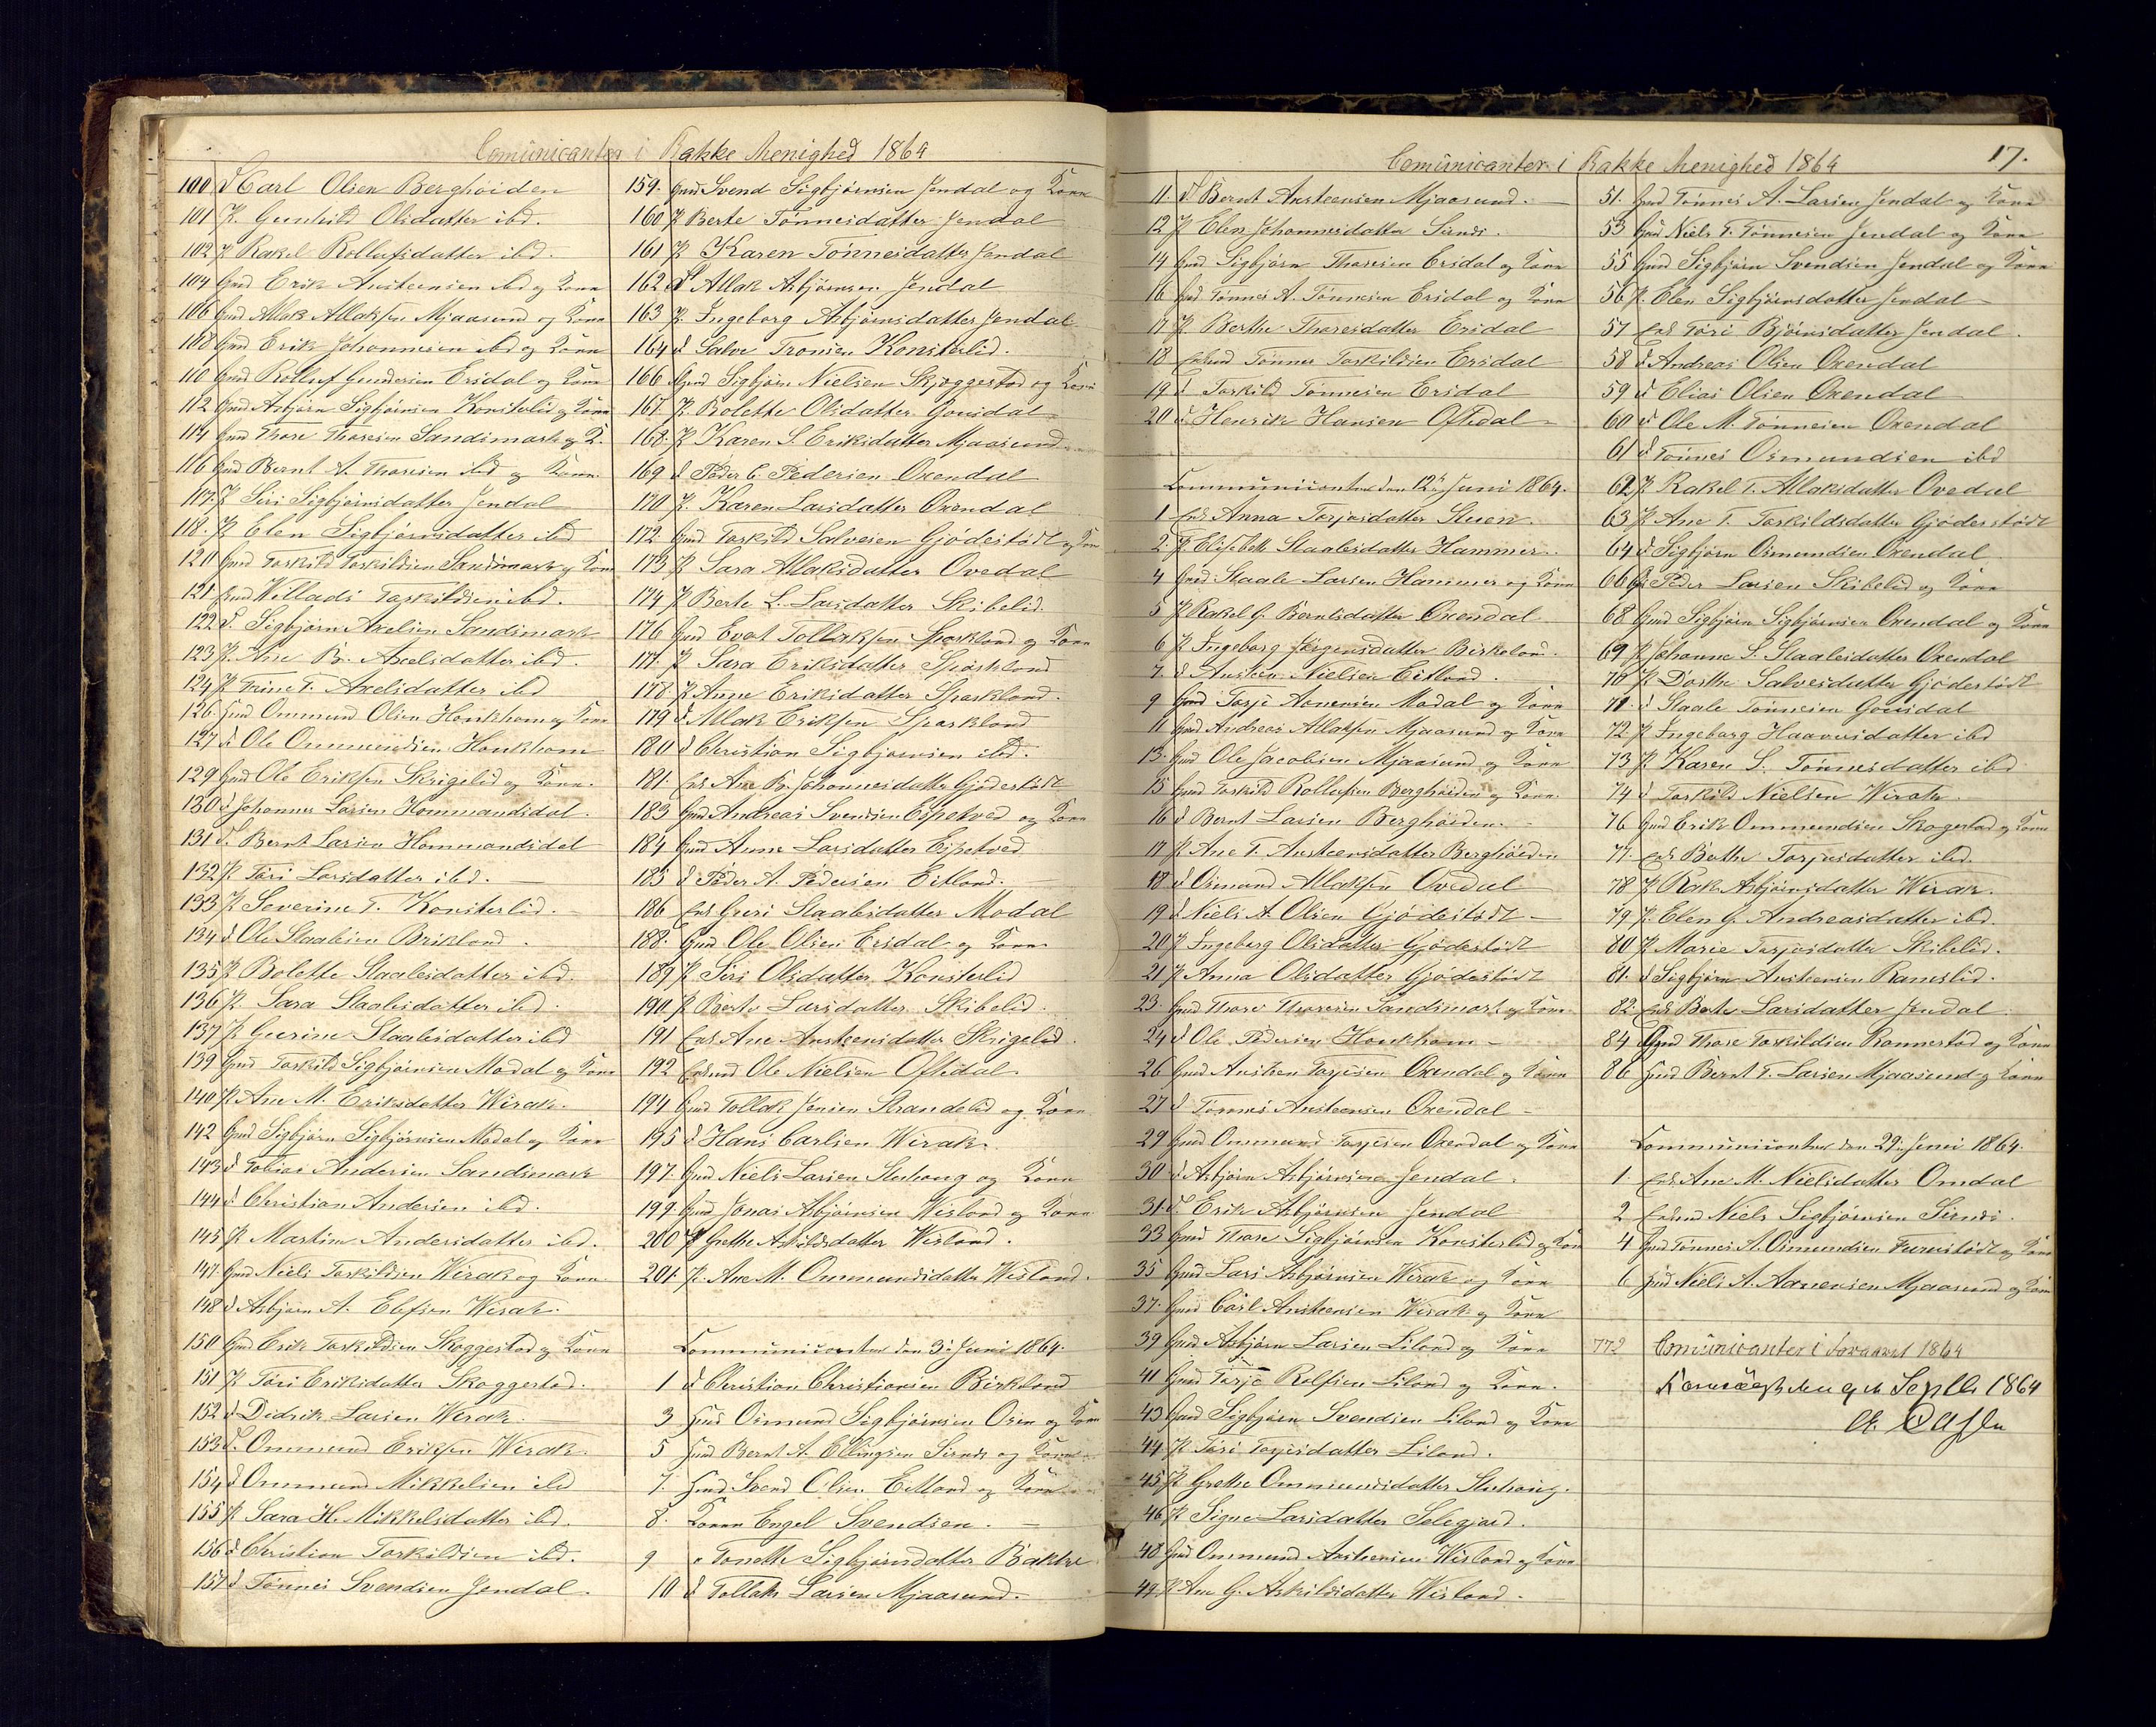 Comunicanter i Bakke Menighed 1864
100 d Carl Olsen Berghöiden
101 P. Gunhild Olsdatter ibd.
102 P Rakel Rollufsdatter ibd.
104 Gmd Erik Austeensen ibd og Kone
106 Gmd Atlak Atlaksen Mjaasund og Kone
108 Gmd Erik Johannesen ibd og Kone
110 Gmd Rolluf Gundersen Ersdal og Kone
112 Gmd Asbjørn Sigbjørnsen Konsterlid og Kone
114 Gmd Thore Thoresen Sandsmark og K.
116 Gmd Bernt A. Thoresen ibd og Kone
117. P Siri Sigbjørnsdatter Jendal
118. P Elen Sigbjørnsdatter ibd
120 Gmd Taskild Taskildsen Sandsmark og Kone
121 Gmd Willads Taskildsen ibd.
122 d. Sigbjørn Axelsen Sandsmark
123 P. Ane B. Axelsdatter ibd.
124 P Trine T. Axelsdatter ibd
126. Gmd Ommund Olsen Honkhom og Kone
127 d. Ole Ommundsen Honkhom
129 Gmd Ole Eriksen Skrigelid og Kone.
130 d Johannes Larsen Hommandsdal.
131 d. Bernt Larsen Hommandsdal
132 P Tori Larsdatter ibd.
133 P Severine T. Konsterlid.
134 d Ole Staalesen Birkland
135 P Bolette Staalesdatter ibd
136 P. Sara Staalesdatter ibd.
137 P Gurine Staalesdatter ibd
139 Gmd Taskild Sigbjørnsen Modal og Kone
140 P. Ane M. Eriksdatter Wirak.
142 Gmd Sigbjørn Sigbjørnsen Modal og Kone
143 d Tobias Andersen Sandsmark
144 d Christian Andersen ibd.
145 P Martine Andersdatter ibd.
147. Gmd Niels Taskildsen Wirak og Kone.
148 d Asbjørn A. Elefsen Wirak.
150 Gmd Erik Taskildsen Skoggestad og Kone
151 P Tori Eriksdatter Skoggestad.
152 d Didrik Larsen Wirak.
153 d. Ommund Eriksen Wirak.
154 d Ommund Mikkelsen ibd
155 P Sara H. Mikkelsdatter ibd.
156 d Christian Taskildsen ibd.
157 d Tönnes Svendsen Jendal.
159. Gmd Svend Sigbjørnsen Jendal og Kone
160 P Berte Tönnesdatter Jendal
161 P. Karen Tönnesdatter Jendal
162 d Atlak Asbjørnsen Jendal
163 P. Ingeborg Asbjørnsdatter Jendal
164 d Salve Tronsen Konsterlid.
166 Gmd Sigbjørn Nielsen Skjoggestad og Kone
167. P. Bolette Olsdatter Gousdal
168. P Karen S. Eriksdatter Mjaasund
169 d Peder C. Pedersen Oxendal
170 P. Karen Larsdatter Oxendal
172. Gmd Taskild Salvesen Gjödestödt og Kone
173 P Sara Atlaksdatter Ovedal
174 P Berte L. Larsdatter Skibelid.
176 Gmd Evat Tollaksen Sparkland og Kone
177. P Sara Eriksdatter Sparkland
178. P Anne Eriksdatter Sparkland.
179 d Atlak Eriksen Sparkland
180 d Christian Sigbjørnsen ibd.
181. Enk Ane B. Johannesdatter Gjödestödt
183 Gmd Andreas Svendsen Espetved og Kone
184 Gmd Anne Larsdatter Espetved
185 d Peder A. Pedersen Eitland.
186 Enk Guri Staalesdatter Modal
188. Gmd Ole Olsen Ersdal og Kone.
189 P. Siri Olsdatter Konsterlid
190 P Berte Larsdatter Skibelid
191 Enk Ane Austeensdatter Skrigelid.
192 Enkmd Ole Nielsen Oftedal.
194 Gmd Tollak Jensen Strandelid og Kone
195 d Hans Carlsen Wirak.
197. Gmd Niels Larsen Stuhoug og Kone
199. Gmd Jonas Asbjørnsen Wisland og Kone
200 P Grethe Askildsdatter Wisland.
201. P. Ane M. Ommundsdatter Wisland.
Communicanter den 3' Juni 1864.
1 d Christian Christiansen Birkeland
3 Gmd Osmund Sigbjørnsen Osen og Kone
5 Gmd Bernt A. Ellingsen Sirnes og Kone
7. Gmd Svend Olsen Eitland og Kone
8. Konen Engel Svendsen.
9 " Tonette Sigbjørnsdatter Bakke
10 d Tollak Larsen Mjaasund.
Comunicanter i Bakke Menighed 1864
17.
11. d Bernt Austeensen Mjaasund.
12 P Elen Johannesdatter Sirnes.
14 Gmd Sigbjørn Thoresen Ersdal og Kone
16 Gmd Tönnes A. Tönnesen Ersdal og Kone
17 P Berthe Thoresdatter Ersdal
18 Enkmd Tönnes Taskildsen Ersdal
19 d Taskild Tönnesen Ersdal
20 d. Henrik Hansen Oftedal
Communicanter den 12te Juni 1864.
1 Enk Anna Torjusdatter Stuen.
2. P. Elisabeth Staalesdatter Hammer.
4 Gmd. Staale Larsen Hammer og Kone
5 P Rakel G. Berntsdatter Oxendal
6 P Ingeborg Jörgensdatter Birkeland.
7. d Austeen Nielsen Eitland.
9 Gmd Torje Aanensen Modal og Kone
11 Gmd Andreas Atlaksen Mjaasund og Kone
13. Gmd Ole Jacobsen Mjaasund og Kone
15 Gmd Taskild Rollufsen Berghöiden og Kone.
16 d Bernt Larsen Berghöiden.
17 P. Ane T. Austeensdatter Berghöiden
18 d Osmund Atlaksen Ovedal
19 d Niels A. Olsen Gjödestödt
20 P Ingeborg Olsdatter Gjödestödt
21 P Anna Olsdatter Gjödestödt
23. Gmd Thore Thoresen Sandsmark og Kone
24 d Ole Pedersen Honkhom
26 Gmd Austeen Torjesen Oxendal og Kone
27 d Tönnes Austeensen Oxendal
29 Gmd Ommund Torjesen Oxendal og Kone
30 d Asbjørn Asbjørnsen Jendal.
31. d. Erik Asbjørnsen Jendal
33 Gmd Thore Sigbjørnsen Konsterlid og Kone
35 Gmd Lars Asbjørnsen Wirak og Kone
37. Gmd Carl Austeensen Wirak og Kone
39 Gmd Asbjørn Larsen Liland og Kone
41 Gmd Torje Rolfsen Liland og Kone.
43 Gmd Sigbjørn Svendsen Liland og Kone
44. P Tori Torjesdatter Liland.
45 P Grethe Ommundsdatter Stuhoug.
46 P Signe Larsdatter Selegjord.
48 Gmd Ommund Austeensen Wisland og Kone
49 P Ane G. Askildsdatter Wisland.
51. Gmd Tönnes A. Larsen Jendal og Kone
53. Gmd Niels T. Tönnesen Jendal og Kone
55 Gmd Sigbjørn Svendsen Jendal og Kone
56 P. Elen Sigbjørnsdatter Jendal
57 Enk Tori Bjørnsdatter Jendal.
58 d Andreas Olsen Oxendal
59 d Elias Olsen Oxendal
60 d Ole M. Tönnesen Oxendal
61 d Tönnes Osmundsen ibd
62 P Rakel T. Atlaksdatter Ovedal
63 P Ane T. Taskildsdatter Gjödestödt
64 d Sigbjørn Osmundsen Oxendal
66 G Peder Larsen Skibelid og Kone
68 Gmd Sigbjørn Sigbjørnsen Oxendal og Kone
69 P Johanne S. Staalesdatter Oxendal
70 P. Dorthe Salvesdatter Gjödestödt
71. d Staale Tönnesen Gousdal
72. P Ingeborg Haaversdatter ibd
73 P Karen S. Tönnesdatter ibd
74 d Taskild Nielsen Wirak.
76 Gmd Erik Ommundsen Skogestad og Kone
77. Enk Berthe Torjusdatter ibd.
78 P. Rakel Asbjørnsdatter Wirak.
79 P. Elen G. Andreasdatter ibd.
80 P Marie Torjusdatter Skibelid.
81. d Sigbjørn Austeensen Ramslid.
82. Enk Berte Larsdatter Jendal.
84 Gmd Thore Taskildsen Rannestad og Kone
86 Gmd Bernt T. Larsen Mjaasund og Kone
Communicanter den 29' Juni 1864.
1. Enk Ane M. Nielsdatter Omdal
2 Enkmd Niels Sigbjørnsen Sirnes.
4 Gmd Tönnes A. Osmundsen Furestödt og Kone
6 Gmd Niels A. Aanensen Mjaasund og Kone
772 Comunicanter i Foraaret 1864
den 9de Septbr 1864